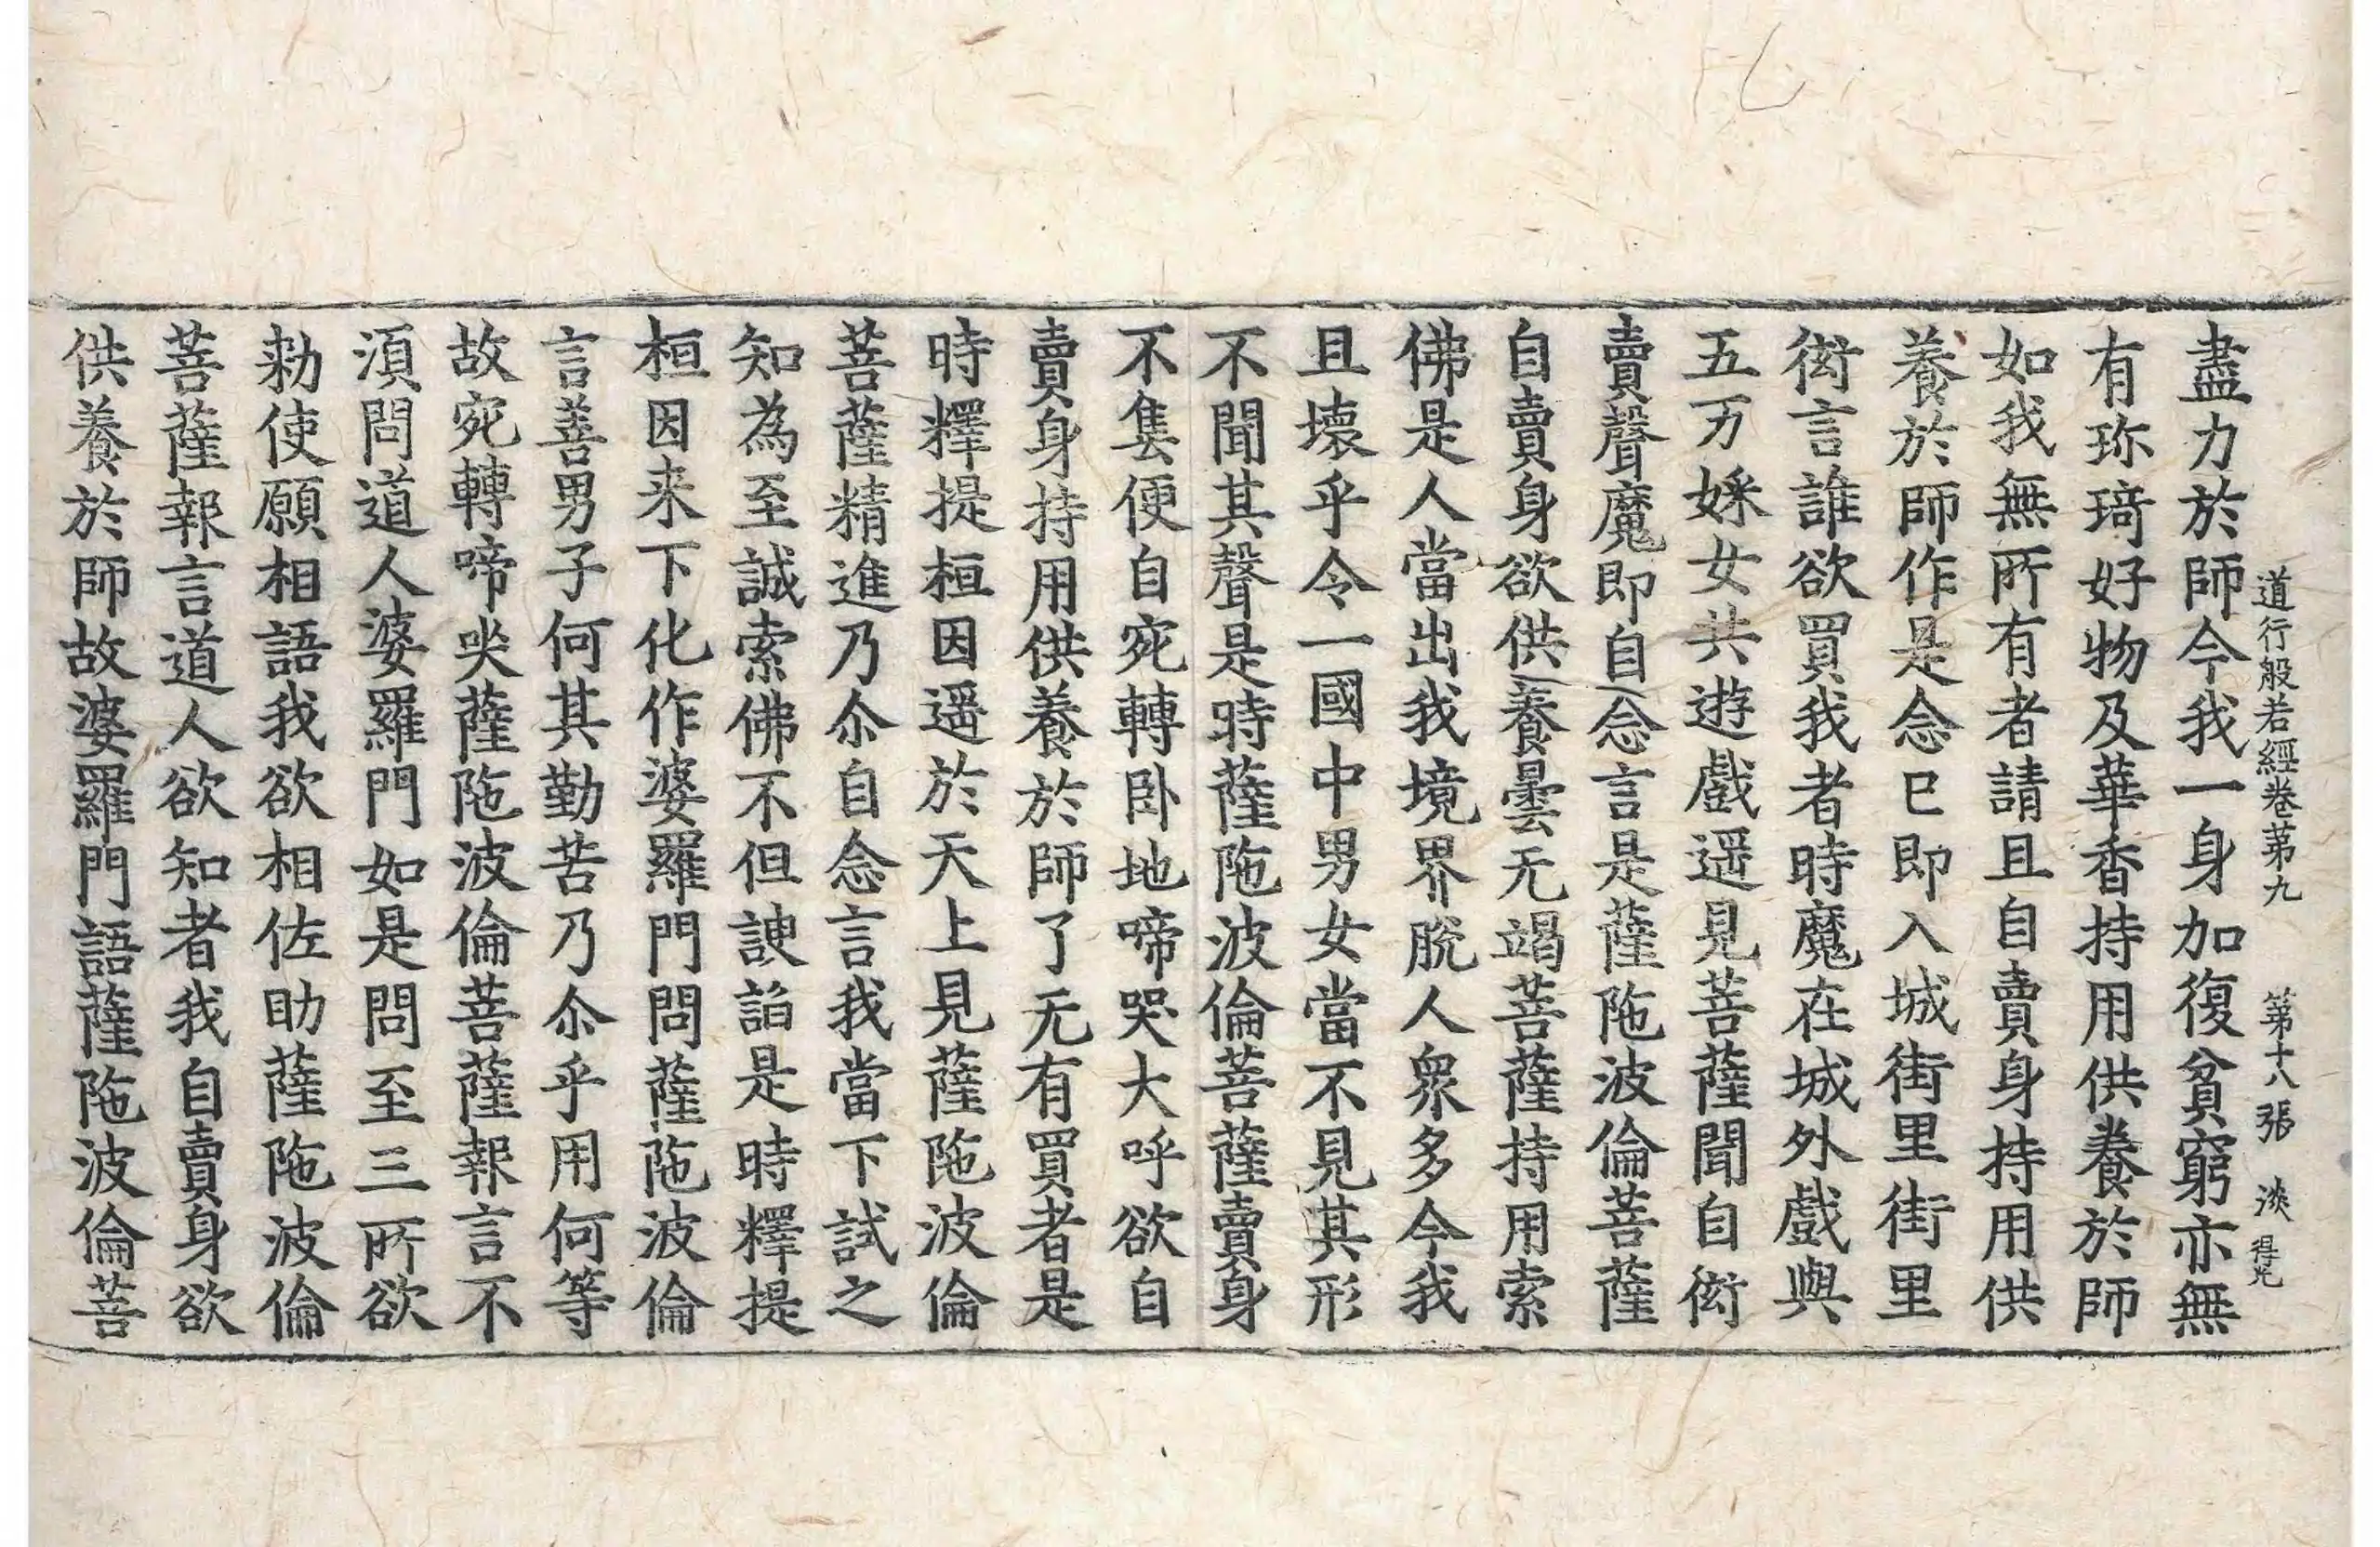 道行般若經卷第九　第十八張　淡　得光
盡力於師今我一身加復貧窮亦無
有珎琦好物及華香持用供養於師
如我無所有者請且自賣身持用供
養於師作是念已即入城街里街里
衒言誰欲買我者時魔在城外戲與
五万婇女共遊戲遥見菩薩聞自衒
賣聲魔即自念言是薩陁波倫菩薩
自賣身欲供養曇无竭菩薩持用索
佛是人當出我境界脫人衆多今我
且壞乎令一國中男女當不見其形
不聞其聲是時薩陁波倫菩薩賣身
不售便自宛轉卧地啼哭大呼欲自
賣身持用供養於師了无有買者是
時釋提桓因遥於天上見薩陁波倫
菩薩精進乃尒自念言我當下試之
知為至誠索佛不但諛諂是時釋提
桓因来下化作婆羅門問薩陁波倫
言善男子何其勤苦乃尒乎用何等
故宛轉啼哭薩陁波倫菩薩報言不
湏問道人婆羅門如是問至三所欲
勑使願相語我欲相佐助薩陁波倫
菩薩報言道人欲知者我自賣身欲
供養於師故婆羅門語薩陁波倫菩